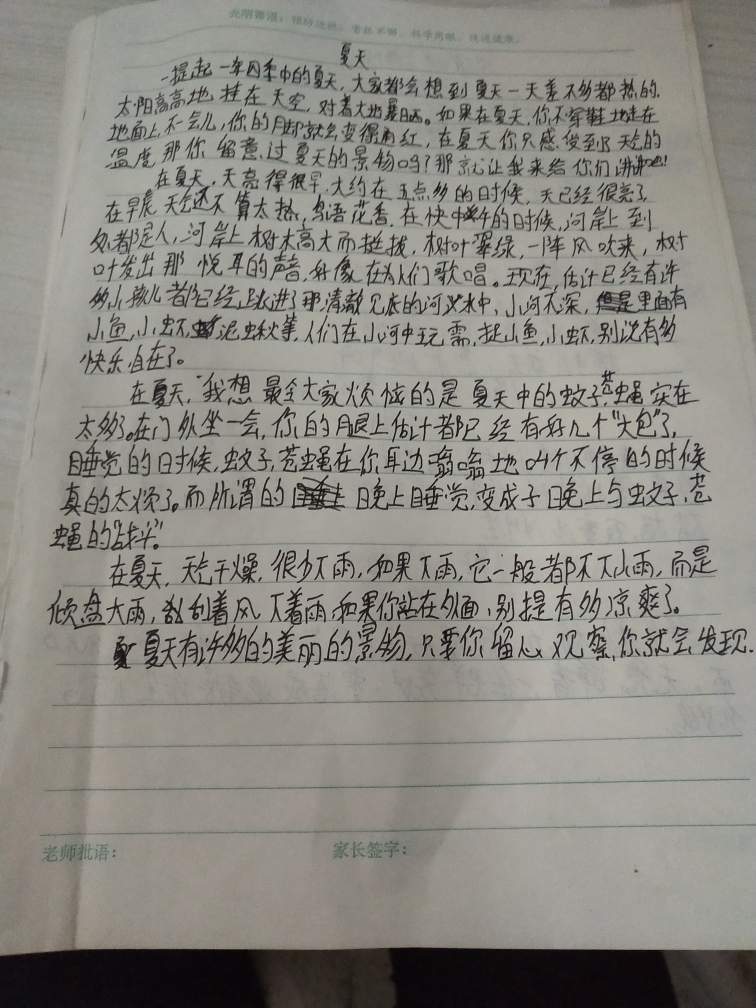 夏天
一提起一年四季中的夏天,大家都会想到夏天一天差不多都热的.
太阳高高地挂在天空,对着大地暴晒。如果在夏天,你不穿鞋地走在
地面上,不一会儿,你的脚就会变得通红,在夏天你只感受到了天气的
温度,那你留意过夏天的景物吗?那就让我来给你们讲讲吧!
在夏天,天亮得很早,大约在五点多的时候,天已经很亮了,
在早晨,天气还不算太热,鸟语花香.在快中午的时候,河岸上到
处都是人,河岸上树木高大而挺拔,树叶翠绿,一阵风吹来,树
叶发出那悦耳的声音,好像在为人们歌唱。现在,估计已经有许
多小孩儿都已经跳进了那清澈见底的河水中,小河不深,里面有
小鱼,小虾,泥蚯蚓等,人们在小河中玩耍,捉小鱼,小虾,别说有多
快乐自在了。
在夏天,我想最令大家烦恼的是夏天中的蚊子,苍蝇实在
太多了。在门外坐一会,你的腿上估计都已经有好几个"大包"了,
睡觉的时候,蚊子,苍蝇在你耳边嗡嗡地叫个不停的时候
真的太烦了。而所谓的晚上睡觉,变成了晚上与蚊子,苍
蝇的"战斗"。
在夏天,天气干燥,很少下雨,如果下雨,它一般都不下小雨,而是
倾盘大雨,刮着风下着雨,如果你站在外面,别提有多凉爽了。
夏天有许多的美丽的景物,只要你留心观察,你就会发现.
老师批语:
家长签字: